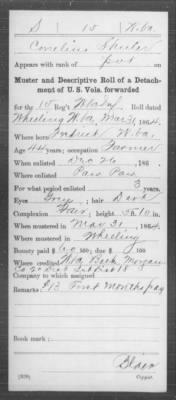 S | 15 | W. Va.
Cornelius Shuter
Appears with rank of Pvt on
Muster and Descriptive Roll of a Detach-
ment of U. S. Vols. forwarded
for the 15 Reg't W Va Inf. Roll dated
Wheeling W. Va., Mar 31, 1864.
Where born W. Va.
Age 44 years; occupation Farmer
When enlisted Dec 26, 186 .
Where enlisted Paw Paw
For what period enlisted 3 years.
Eyes Grey; hair Dark
Complexion Fair; height 5 ft. 10 in.
When mustered in Mar 31, 1864
Where mustered in Wheeling
Bounty paid $ 60/100; due $ /100
Where credited
Company to which assigned
Remarks: $13 First months pay
Book mark:
Copyist.